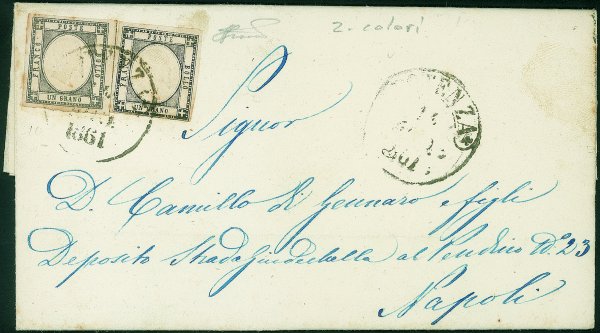 2 colori
FRANCO POSTE BOLLO
UN GRANO
FRANCO POSTE BOLLO
UN GRANO
1861
ENZA
1861
Signor
D. Camillo di Gennaro e figli
Deposito Strada Giudecchella al Pendino N° 23
Napoli